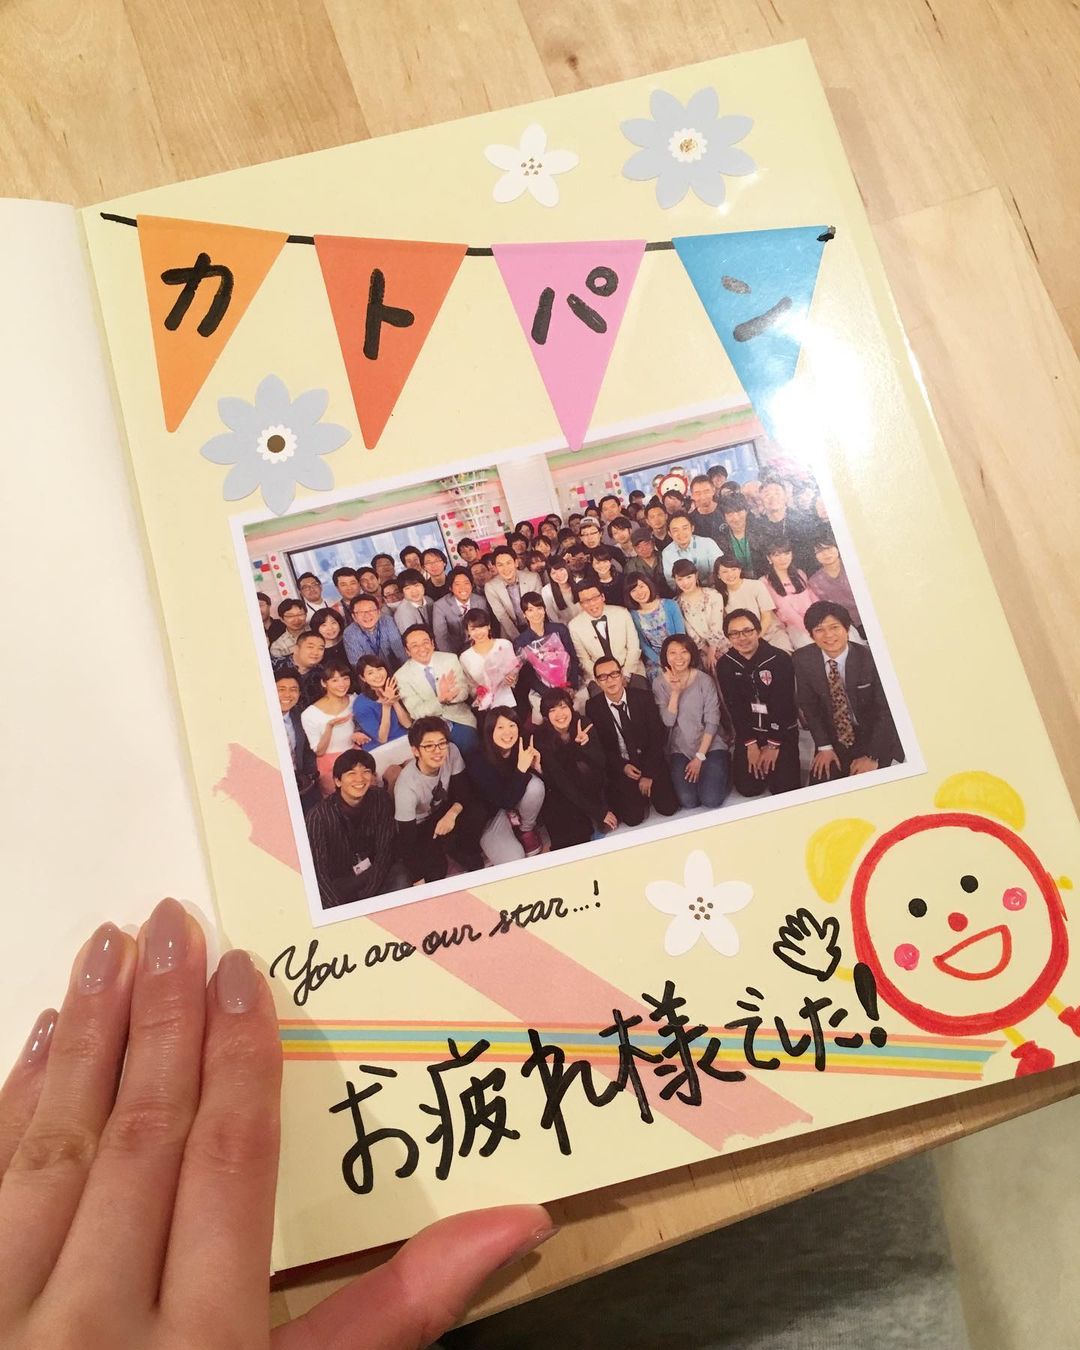 カトパン
You are our star...!
お疲れ様でした!